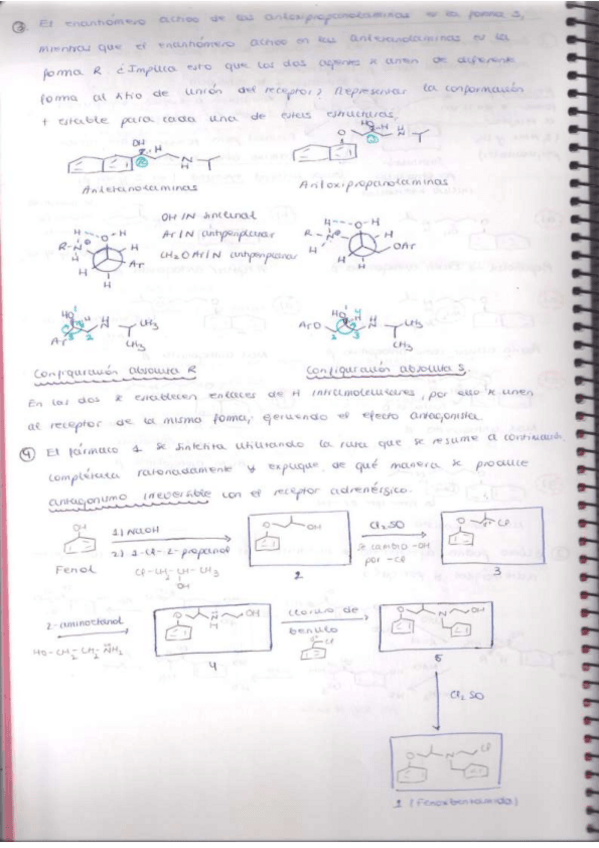 ③ El enantiómero activo de las antoxipropanolaminas es la forma S,
mientras que el enantiómero activo en las antetanolaminas es la
forma R ¿Implica esto que los dos agentes se unen de diferente
forma al sitio de unión del receptor? Representar la conformación
+ estable para cada una de estas estructuras.
OH
H
N
H
O
HO
H
H
N
Antetanolaminas
Antoxipropanolaminas
OH/N sinclinal
Ar/N antiperiplanar
CH2OAr/N antiperiplanar
H---O-H
R-N
H
H
H
Ar
H
H---O-H
R-N
H
H
H
OAr
H
HO
H
N
CH3
CH3
Ar
1
2
3
HO
H
N
CH3
CH3
ArO
1
2
3
4
Configuración absoluta R
Configuración absoluta S
En los dos se establecen enlaces de H intramoleculares, por ello se unen
al receptor de la misma forma, ejerciendo el efecto antagonista.
④ El fármaco 1 se sintetiza utilizando la ruta que se resume a continuación,
complétala razonadamente y explique de qué manera se produce
antagonismo irreversible con el receptor adrenérgico.
OH
Fenol
1) NaOH
2) 1-Cl-2-propanol
Cl-CH2-CH-CH3
OH
O
OH
2
Cl2SO
se cambia -OH
por -Cl
O
Cl
3
2-aminoetanol
HO-CH2-CH2-NH2
O
N
H
OH
4
Cloruro de
bencilo
Cl
O
N
OH
5
Cl2SO
O
N
Cl
1 (Fenoxibenzamida)